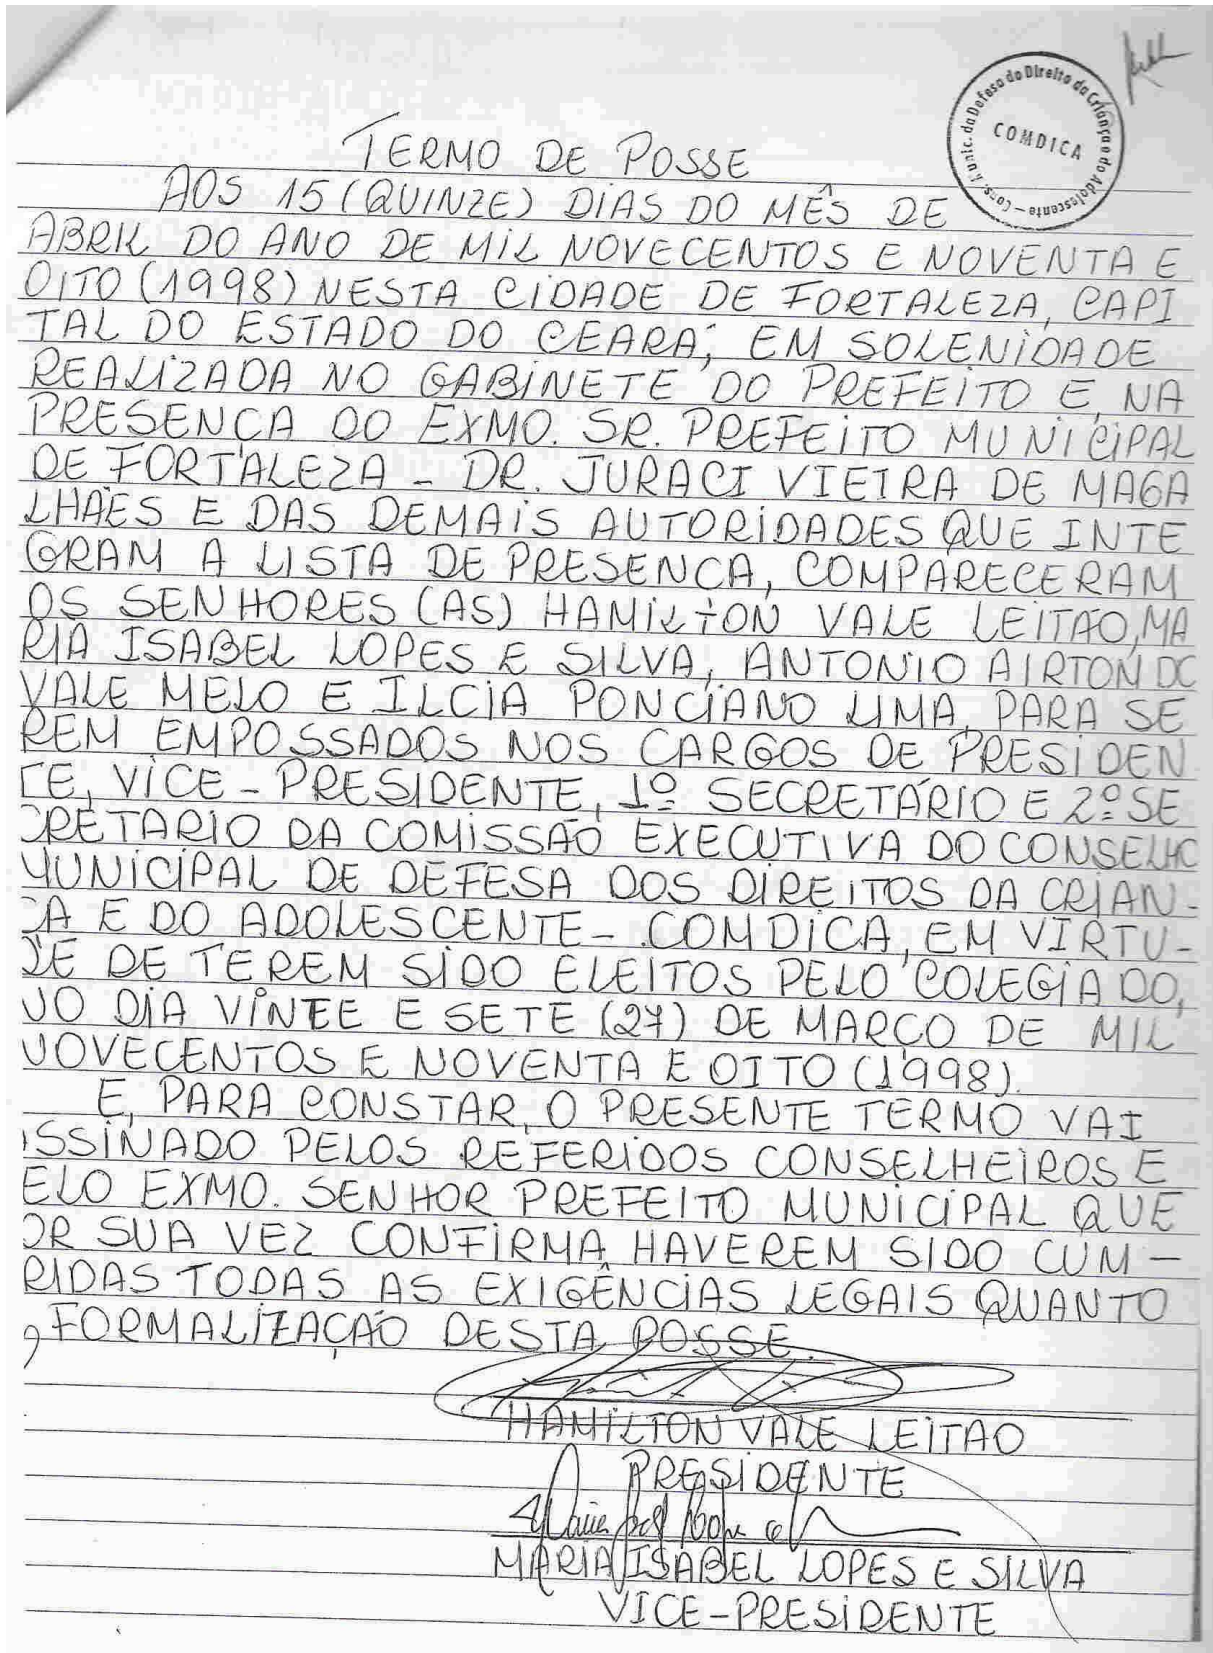 Cons. Munic. da Defesa do Direito da Criança e do Adolescente
COMDICA
TERMO DE POSSE
AOS 15 (QUINZE) DIAS DO MÊS DE
ABRIL DO ANO DE MIL NOVECENTOS E NOVENTA E
OITO (1998) NESTA CIDADE DE FORTALEZA, CAPI
TAL DO ESTADO DO CEARÁ, EM SOLENIDADE
REALIZADA NO GABINETE DO PREFEITO E, NA
PRESENÇA DO EXMO. SR. PREFEITO MUNICIPAL
DE FORTALEZA - DR. JURACI VIEIRA DE MAGA
LHÃES E DAS DEMAIS AUTORIDADES QUE INTE
GRAM A LISTA DE PRESENÇA, COMPARECERAM
OS SENHORES (AS) HAMILTON VALE LEITÃO, MA
RIA ISABEL LOPES E SILVA, ANTONIO AIRTON DO
VALE MELO E ILCIA PONCIANO LIMA, PARA SE
REM EMPOSSADOS NOS CARGOS DE PRESIDEN
TE, VICE - PRESIDENTE, 1º SECRETÁRIO E 2º SE
CRETARIO DA COMISSÃO EXECUTIVA DO CONSELHO
MUNICIPAL DE DEFESA DOS DIREITOS DA CRIAN-
ÇA E DO ADOLESCENTE - COMDICA, EM VIRTU-
DE DE TEREM SIDO ELEITOS PELO COLEGIADO,
NO DIA VINTE E SETE (27) DE MARÇO DE MIL
NOVECENTOS E NOVENTA E OITO (1998).
E, PARA CONSTAR, O PRESENTE TERMO VAI
ASSINADO PELOS REFERIDOS CONSELHEIROS E
ELO EXMO. SENHOR PREFEITO MUNICIPAL QUE
OR SUA VEZ CONFIRMA HAVEREM SIDO CUM -
RIDAS TODAS AS EXIGÊNCIAS LEGAIS QUANTO
FORMALIZAÇÃO DESTA POSSE.
HAMILTON VALE LEITÃO
PRESIDENTE
MARIA ISABEL LOPES E SILVA
VICE-PRESIDENTE